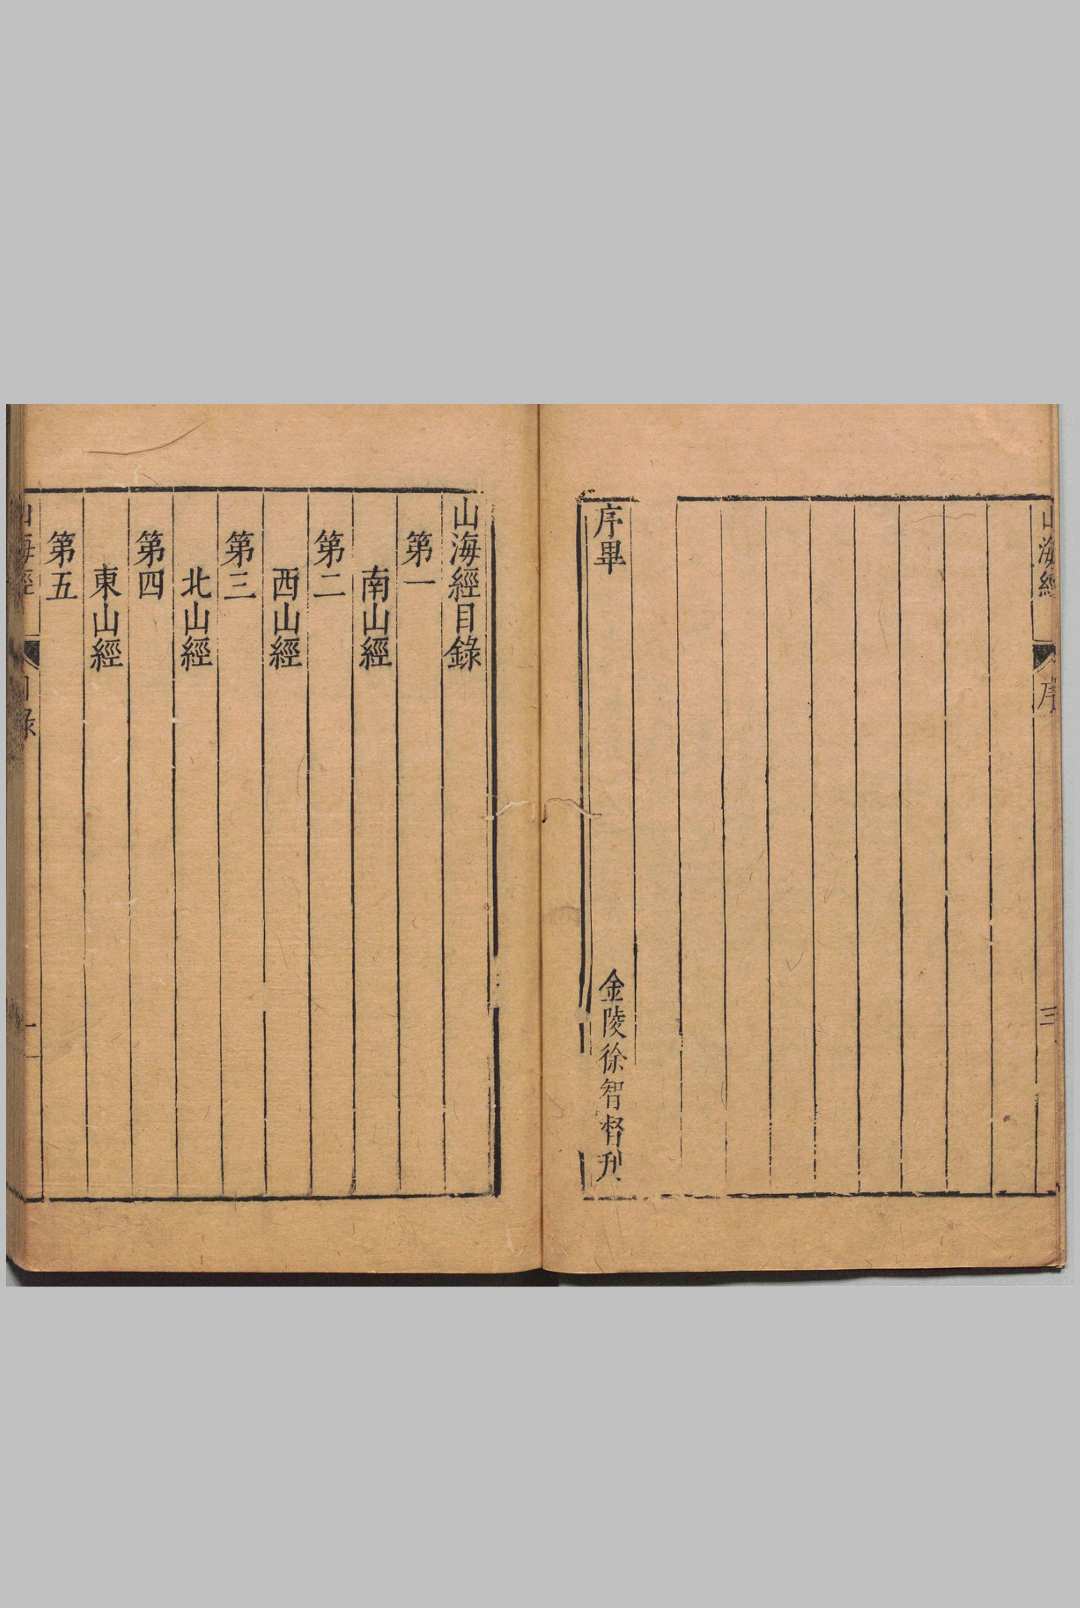 山海經
序
三
序畢
金陵徐智督刋
山海經目錄
第一
南山經
第二
西山經
第三
北山經
第四
東山經
第五
山海經
目錄
一